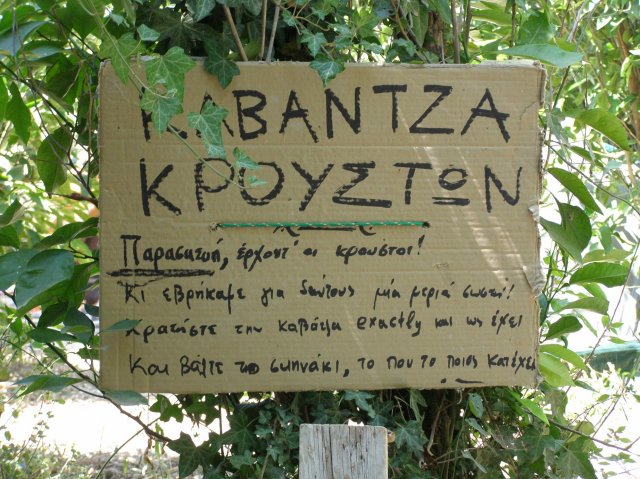 ΚΑΒΑΝΤΖΑ
ΚΡΟΥΣΤΩΝ
Παρασκευή, έρχοντ' οι κρουστοί!
Κι εβρήκαμε για δαύτους μία μεριά σωστή!
Κρατήστε την καβάτζα exactly και ως έχει
Και βάλτε το σκηνάκι, το που το ποιος κατέχει